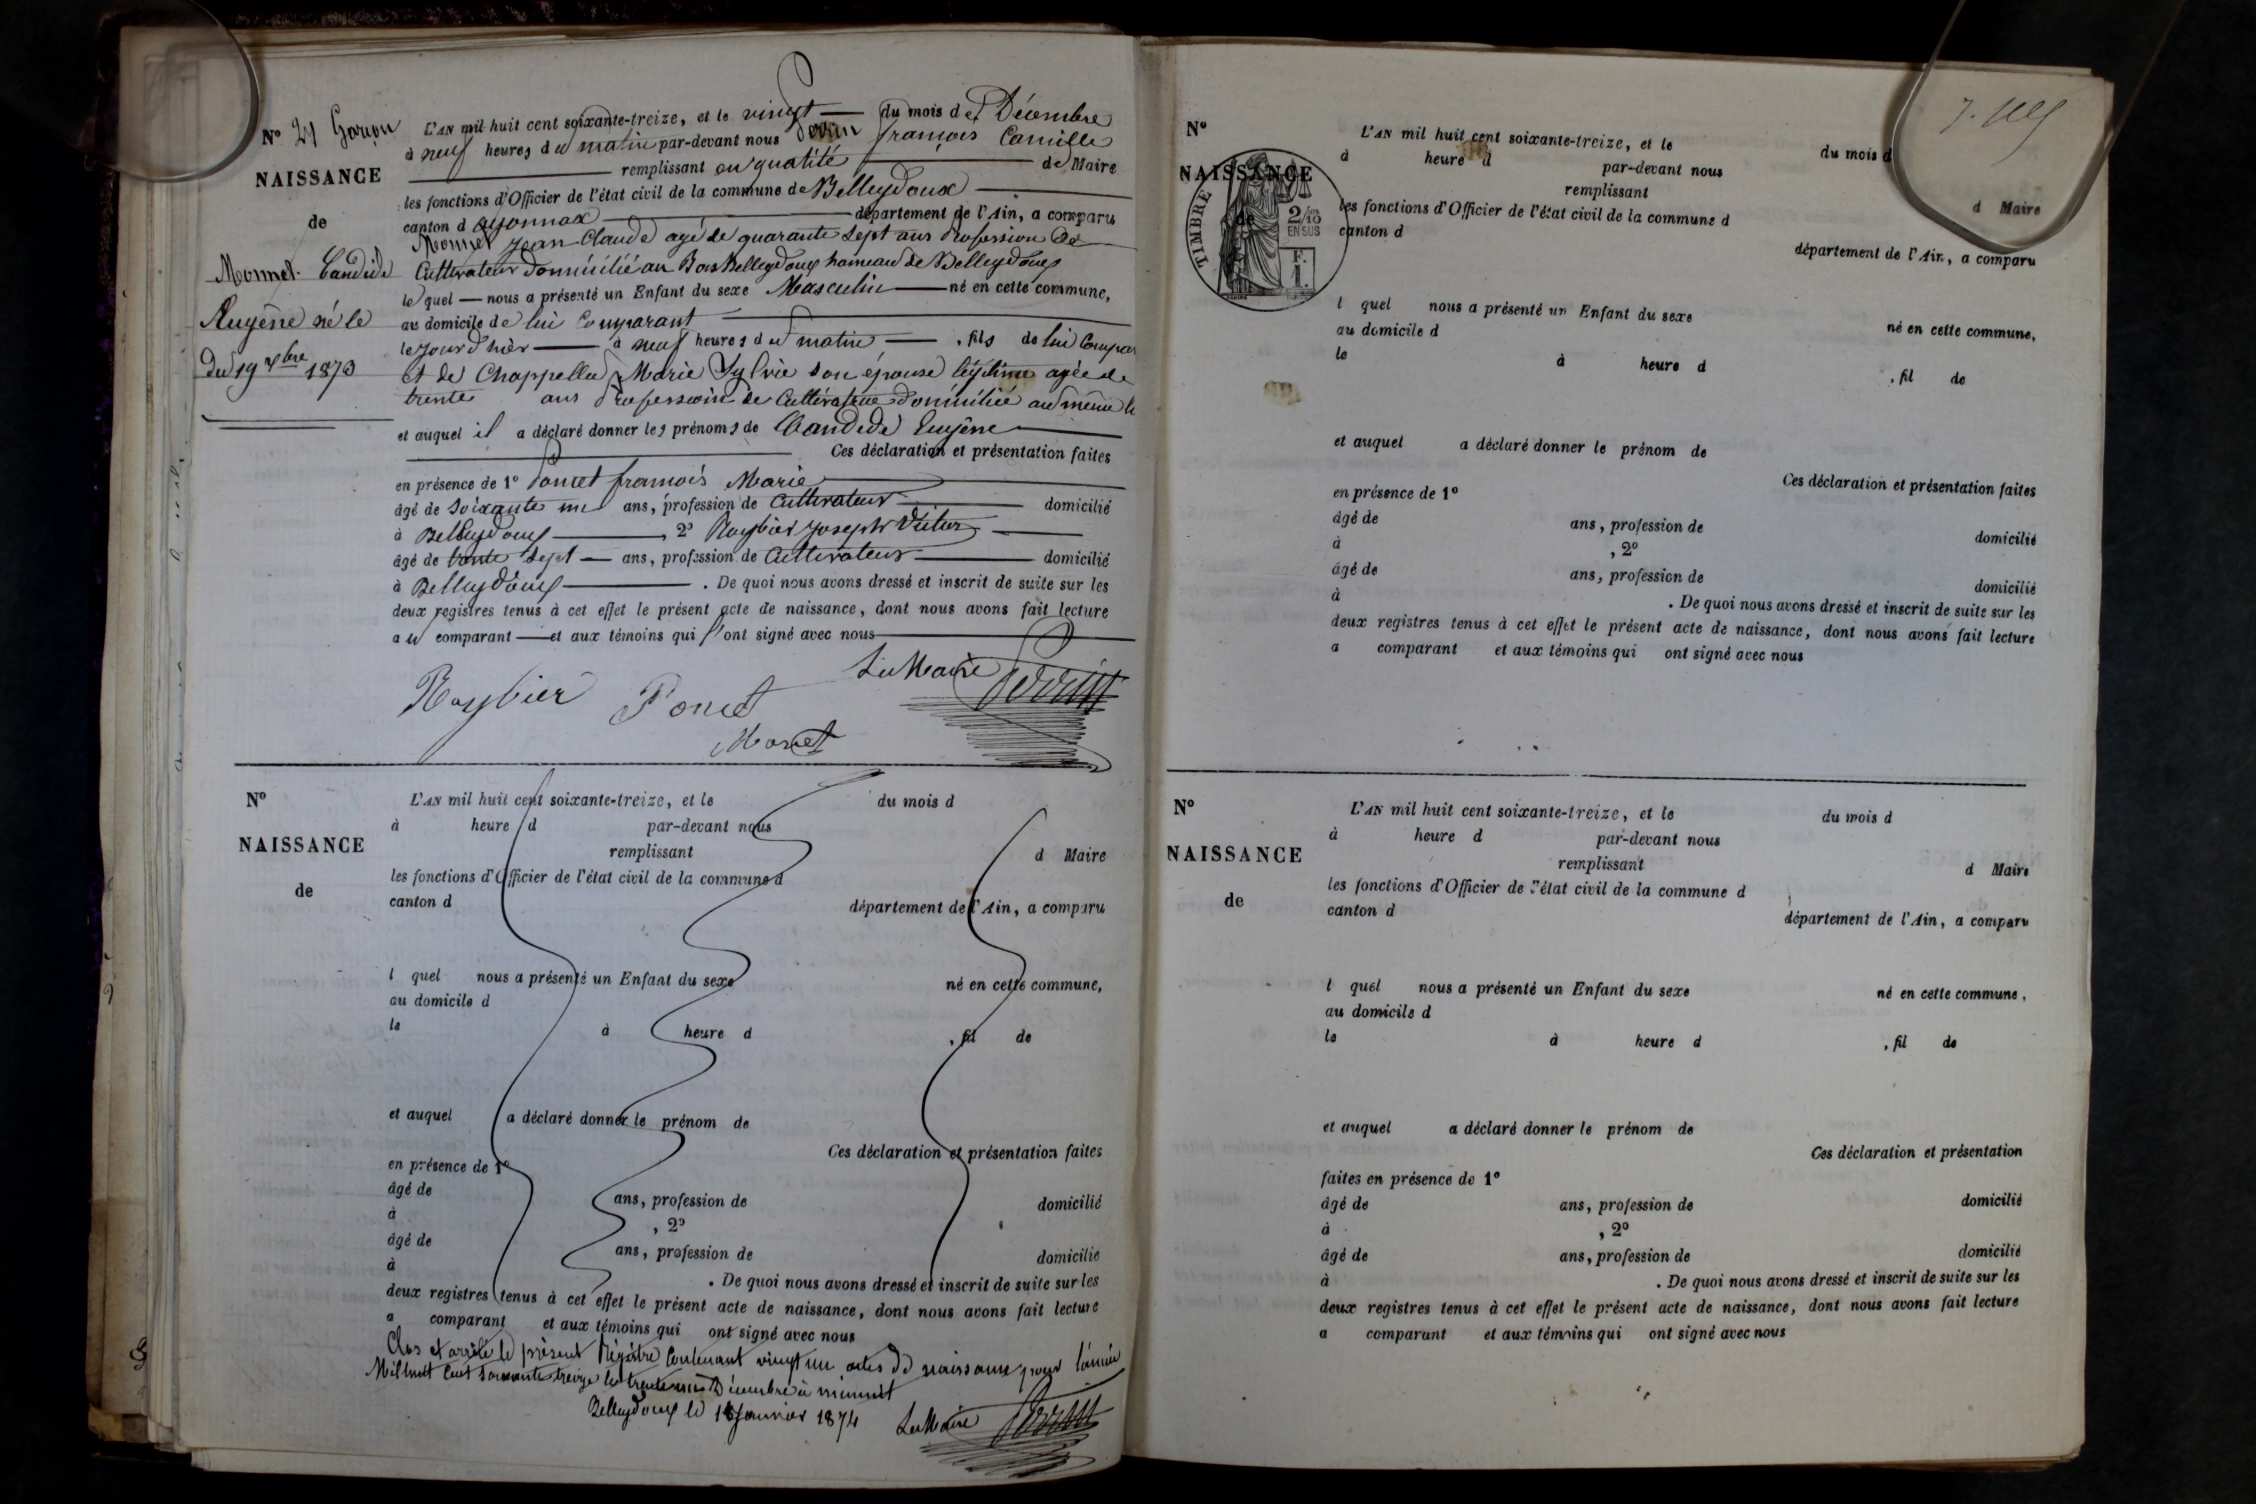 N° 21 Garçon
NAISSANCE
de
Monnet Candide
Eugène né le
du 19 Xbre 1873
L'AN mil huit cent soixante-treize, et le vingt du mois de Décembre
à neuf heures du matin par-devant nous Perrin françois Camille
remplissant en qualité de Maire
les fonctions d'Officier de l'état civil de la commune de Belleydoux
canton d'oyonnax département de l'Ain, a comparu
Monnet Jean Claude agé de quarante sept ans Profession de
Cultivateur domicilié au Bois Belleydoux hameau de Belleydoux
lequel nous a présenté un Enfant du sexe Masculin né en cette commune,
au domicile de lui Comparant
le jour d'hier à neuf heures du matin , fils de lui Compar
et de Chappellu Marie Sylvie son épouse légitime agée de
trente ans Profession de Cultivatrice domiciliée au même
et auquel il a déclaré donner les prénoms de Candide Eugène
Ces déclaration et présentation faites
en présence de 1° Poncet françois Marie
âgé de soixante un ans, profession de Cultivateur domicilié
à Belleydoux , 2° Raybier Joseph
âgé de trente sept ans, profession de Cultivateur domicilié
à Belleydoux . De quoi nous avons dressé et inscrit de suite sur les
deux registres tenus à cet effet le présent acte de naissance, dont nous avons fait lecture
au comparant et aux témoins qui l'ont signé avec nous
Le Maire Perrin
Raybier Poncet
Monet
N°
NAISSANCE
de
L'AN mil huit cent soixante-treize, et le du mois d
à heure d par-devant nous
remplissant d Maire
les fonctions d'Officier de l'état civil de la commune d
canton d département de l'Ain, a comparu
l quel nous a présenté un Enfant du sexe né en cette commune,
au domicile d
le à heure d , fil de
et auquel a déclaré donner le prénom de
Ces déclaration et présentation faites
en présence de 1°
âgé de ans, profession de domicilié
à , 2°
âgé de ans, profession de domicilié
à . De quoi nous avons dressé et inscrit de suite sur les
deux registres tenus à cet effet le présent acte de naissance, dont nous avons fait lecture
a comparant et aux témoins qui ont signé avec nous
Clos et arrêté le présent Régistre Contenant vingt un actes de naissance pour l'année
Mil huit Cent Soixante treize le trente un Décembre à minuit
Belleydoux le 1 Janvier 1874 Le Maire Perrin
N°
NAISSANCE
de
TIMBRE
2/10
EN SUS
F.
1.
L'AN mil huit cent soixante-treize, et le du mois d
à heure d par-devant nous
remplissant d Maire
les fonctions d'Officier de l'état civil de la commune d
canton d département de l'Ain, a comparu
l quel nous a présenté un Enfant du sexe né en cette commune,
au domicile d
le à heure d , fil de
et auquel a déclaré donner le prénom de
Ces déclaration et présentation faites
en présence de 1°
âgé de ans, profession de domicilié
à , 2°
âgé de ans, profession de domicilié
à . De quoi nous avons dressé et inscrit de suite sur les
deux registres tenus à cet effet le présent acte de naissance, dont nous avons fait lecture
a comparant et aux témoins qui ont signé avec nous
N°
NAISSANCE
de
L'AN mil huit cent soixante-treize, et le du mois d
à heure d par-devant nous
remplissant d Maire
les fonctions d'Officier de l'état civil de la commune d
canton d département de l'Ain, a comparu
l quel nous a présenté un Enfant du sexe né en cette commune,
au domicile d
le à heure d , fil de
et auquel a déclaré donner le prénom de
Ces déclaration et présentation
faites en présence de 1°
âgé de ans, profession de domicilié
à , 2°
âgé de ans, profession de domicilié
à . De quoi nous avons dressé et inscrit de suite sur les
deux registres tenus à cet effet le présent acte de naissance, dont nous avons fait lecture
a comparant et aux témoins qui ont signé avec nous